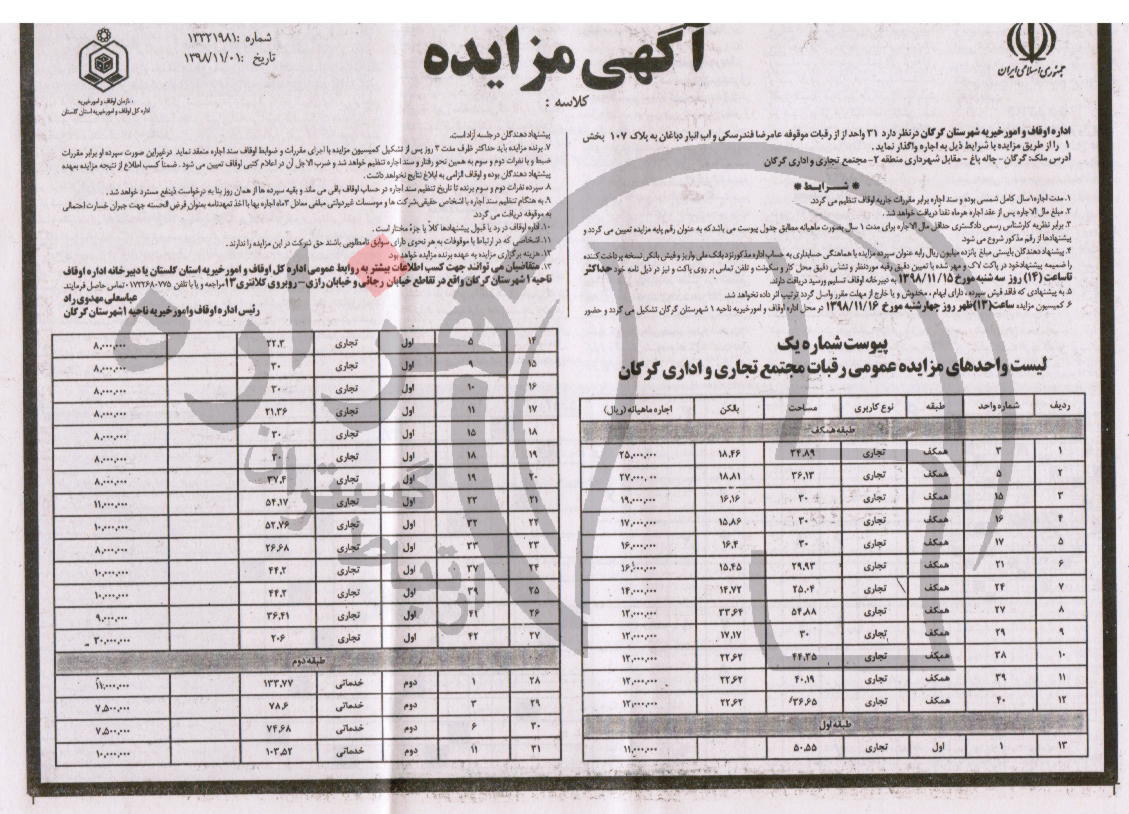 جمهوری اسلامی ایران
آگهی مزایده
کلاسه :
شماره :۱۳۲۲۱۹۸۱
تاریخ :۱۳۹۸/۱۱/۰۱
سازمان اوقاف و امور خیریه
اداره کل اوقاف و امور خیریه استان گلستان
اداره اوقاف و امور خیریه شهرستان گرگان در نظر دارد ۳۱ واحد از رقبات موقوفه عامرضا فندرسکی و آب انبار دباغان به پلاک ۱۰۷ بخش
۱ را از طریق مزایده با شرایط ذیل به اجاره واگذار نماید.
آدرس ملک: گرگان- چاله باغ - مقابل شهرداری منطقه ۲- مجتمع تجاری و اداری گرگان
* شــرایـط *
۱. مدت اجاره ۱سال کامل شمسی بوده و سند اجاره برابر مقررات جاریه اوقاف تنظیم می گردد.
۲. مبلغ مال الاجاره پس از عقد اجاره هرماه نقداً دریافت خواهد شد.
۳. برابر نظریه کارشناس رسمی دادگستری حداقل مال الاجاره برای مدت ۱ سال بصورت ماهیانه مطابق جدول پیوست می باشد که به عنوان رقم پایه مزایده تعیین می گردد و
پیشنهادها از رقم مذکور شروع می شود.
۴. پیشنهاد دهندگان بایستی مبلغ پانزده میلیون ریال را به عنوان سپرده مزایده با هماهنگی حسابداری به حساب اداره مذکور نزد بانک ملی واریز و فیش بانکی نسخه پرداخت کننده
را ضمیمه پیشنهاد خود در پاکت لاک و مهر شده با تعیین دقیق رقبه مورد نظر و نشانی دقیق محل کار و سکونت و تلفن تماس بر روی پاکت و نیز در ذیل نامه خود حداکثر
تا ساعت (۱۴) روز سه شنبه مورخ ۱۳۹۸/۱۱/۱۵ به دبیرخانه اوقاف تسلیم و رسید دریافت دارند.
۵. به پیشنهادی که فاقد فیش سپرده ، دارای ابهام ، مخدوش و یا خارج از مهلت مقرر واصل گردد ترتیب اثر داده نخواهد شد.
۶. کمیسیون مزایده ساعت (۱۲) ظهر روز چهارشنبه مورخ ۱۳۹۸/۱۱/۱۶ در محل اداره اوقاف و امور خیریه ناحیه ۱ شهرستان گرگان تشکیل می گردد و حضور
پیشنهاد دهندگان در جلسه آزاد است.
۷. برنده مزایده باید حداکثر ظرف مدت ۳ روز پس از تشکیل کمیسیون مزایده با اجرای مقررات و ضوابط اوقاف سند اجاره منعقد نماید در غیر این صورت سپرده او برابر مقررات
ضبط و با نفرات دوم و سوم به همین نحو رفتار و سند اجاره تنظیم خواهد شد و ضرب الاجل آن در اعلام کتبی اوقاف تعیین می شود . ضمناً کسب اطلاع از نتیجه مزایده بعهده
پیشنهاد دهندگان بوده و اوقاف الزامی به ابلاغ نتایج نخواهد داشت.
۸. سپرده نفرات دوم و سوم برنده تا تاریخ تنظیم سند اجاره در حساب اوقاف باقی می ماند و بقیه سپرده ها از همان روز بنا به درخواست ذینفع مسترد خواهد شد .
۹. به هنگام تنظیم سند اجاره با اشخاص حقیقی شرکت ها و موسسات غیر دولتی مبلغی معادل ۳ ماه اجاره بها با اخذ تعهدنامه بعنوان قرض الحسنه جهت جبران خسارت احتمالی
به موقوفه دریافت می گردد.
۱۰. اداره اوقاف در رد یا قبول پیشنهادها کلاً یا جزء مختار است .
۱۱. اشخاصی که در ارتباط با موقوفات به هر نحوی دارای سوابق نامطلوبی باشند حق شرکت در این مزایده را ندارند .
۱۲. هزینه برگزاری مزایده به عهده برنده مزایده خواهد بود.
۱۳. متقاضیان می توانند جهت کسب اطلاعات بیشتر به روابط عمومی اداره کل اوقاف و امور خیریه استان گلستان یا دبیرخانه اداره اوقاف
ناحیه ۱ شهرستان گرگان واقع در تقاطع خیابان رجائی و خیابان رازی – روبروی کلانتری ۱۳ مراجعه و یا با تلفن تماس حاصل فرمایند.
عباسعلی مهدوی راد
رئیس اداره اوقاف و امور خیریه ناحیه ۱شهرستان گرگان
پیوست شماره یک
لیست واحدهای مزایده عمومی رقبات مجتمع تجاری و اداری گرگان
ردیف شماره واحد طبقه نوع کاربری مساحت بالکن اجاره ماهیانه (ریال)
طبقه همکف
۱ ۳ همکف تجاری ۳۴.۸۹ ۱۸.۴۶ ۲۵,۰۰۰,۰۰۰
۲ ۵ همکف تجاری ۳۶.۱۳ ۱۸.۸۱ ۲۷,۰۰۰,۰۰
۳ ۱۵ همکف تجاری ۳۰ ۱۶.۱۶ ۱۹,۰۰۰,۰۰۰
۴ ۱۶ همکف تجاری ۳۰ ۱۵.۸۶ ۱۷,۰۰۰,۰۰۰
۵ ۱۷ همکف تجاری ۳۰ ۱۶.۴ ۱۶,۰۰۰,۰۰۰
۶ ۲۱ همکف تجاری ۲۹.۹۳ ۱۵.۴۵ ۱۶,۰۰۰,۰۰۰
۷ ۲۴ همکف تجاری ۲۵.۰۴ ۱۴.۷۲ ۱۴,۰۰۰,۰۰۰
۸ ۲۷ همکف تجاری ۵۴.۸۸ ۳۳.۶۴ ۱۲,۰۰۰,۰۰۰
۹ ۲۹ همکف تجاری ۳۰ ۱۷.۱۷ ۱۲,۰۰۰,۰۰۰
۱۰ ۳۸ همکف تجاری ۴۴.۳۵ ۲۲.۶۲ ۱۲,۰۰۰,۰۰۰
۱۱ ۳۹ همکف تجاری ۴۰.۱۹ ۲۲.۶۲ ۱۲,۰۰۰,۰۰۰
۱۲ ۴۰ همکف تجاری ۳۶.۶۵ ۲۲.۶۲ ۱۲,۰۰۰,۰۰۰
طبقه اول
۱۳ ۱ اول تجاری ۵۰.۵۵ ۱۱,۰۰۰,۰۰۰
۱۴ ۵ اول تجاری ۲۲.۳ ۸,۰۰۰,۰۰۰
۱۵ ۹ اول تجاری ۳۰ ۸,۰۰۰,۰۰۰
۱۶ ۱۰ اول تجاری ۳۰ ۸,۰۰۰,۰۰۰
۱۷ ۱۱ اول تجاری ۲۱.۳۶ ۸,۰۰۰,۰۰۰
۱۸ ۱۵ اول تجاری ۳۰ ۸,۰۰۰,۰۰۰
۱۹ ۱۸ اول تجاری ۳۰ ۸,۰۰۰,۰۰۰
۲۰ ۱۹ اول تجاری ۳۷.۴ ۸,۰۰۰,۰۰۰
۲۱ ۲۲ اول تجاری ۵۴.۱۷ ۱۱,۰۰۰,۰۰۰
۲۲ ۳۲ اول تجاری ۵۲.۷۶ ۱۰,۰۰۰,۰۰۰
۲۳ ۳۳ اول تجاری ۲۶.۶۸ ۸,۰۰۰,۰۰۰
۲۴ ۳۷ اول تجاری ۴۴.۲ ۱۰,۰۰۰,۰۰۰
۲۵ ۳۹ اول تجاری ۴۴.۲ ۱۰,۰۰۰,۰۰۰
۲۶ ۴۱ اول تجاری ۳۶.۴۱ ۹,۰۰۰,۰۰۰
۲۷ ۴۲ اول تجاری ۲۰۶ ۳۰,۰۰۰,۰۰۰
طبقه دوم
۲۸ ۱ دوم خدماتی ۱۳۳.۷۷ ۱۱,۰۰۰,۰۰۰
۲۹ ۳ دوم خدماتی ۷۸.۶ ۷,۵۰۰,۰۰۰
۳۰ ۶ دوم خدماتی ۷۴.۶۸ ۷,۵۰۰,۰۰۰
۳۱ ۱۱ دوم خدماتی ۱۰۳.۵۲ ۱۰,۰۰۰,۰۰۰
هزاره
گستران
ارتباط